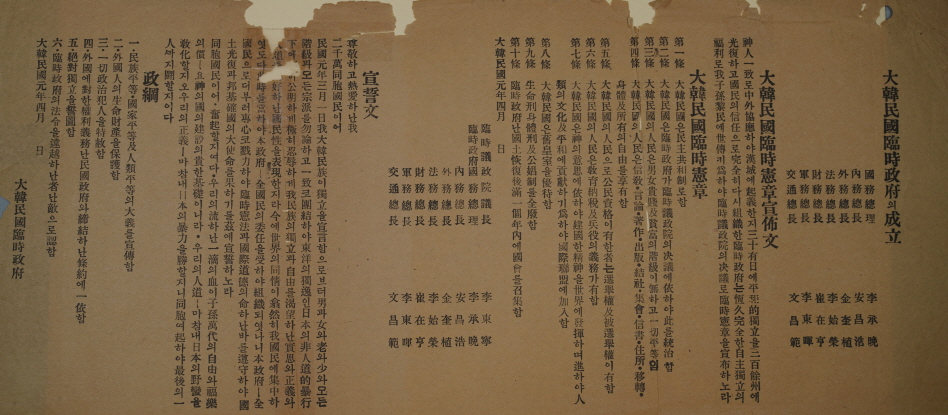 大韓民國臨時政府의成立
國務總理 李承晩
內務總長 安昌浩
外務總長 金奎植
法務總長 李始榮
財務總長 崔在亨
軍務總長 李東暉
交通總長 文昌範
大韓民國臨時憲章宣佈文
神人一致로中外協應하야漢城에起義한지三十有日에平和的獨立을三百餘州에
光復하고國民의信任으로完全히다시組織한臨時政府는恆久完全한自主獨立의
福利로我子孫黎民에世傳키爲하야臨時議政院의決議로臨時憲章을宣布하노라
大韓民國臨時憲章
第一條 大韓民國은民主共和制로함
第二條 大韓民國은臨時政府가臨時議政院의決議에依하야此를統治함
第三條 大韓民國의人民은男女貴賤及貧富의階級이無하고一切平等임
第四條 大韓民國의人民은信敎言論·著作·出版·結社·集會·信書·住所·移轉·
身體及所有의自由를享有함
第五條 大韓民國의人民으로公民資格이有한者는選擧權及被選擧權이有함
第六條 大韓民國의人民은敎育納稅及兵役의義務가有함
第七條 大韓民國은神의意思에依하야建國한精神을世界에發揮하며進하야人
類의文化及平和에貢獻하기爲하야國際聯盟에加入함
第八條 大韓民國은舊皇室을優待함
第九條 生命刑身體刑及公娼制를全廢함
第十條 臨時政府난國土恢復後滿一個年內에國會를召集함
大韓民國元年四月 日
臨時議政院議長 李東寧
臨時政府國務總理 李承晩
內務總長 安昌浩
外務總長 金奎植
法務總長 李始榮
財務總長 崔在亨
軍務總長 李東暉
交通總長 文昌範
宣誓文
尊敬하고熱愛하난我
二千萬同胞國民이어
民國元年三月一日我大韓民族이獨立을宣言함으로브터男과女와老와少와모든
階級과모든宗派를勿論하고一致코團結하야東洋의獨逸인日本의非人道的暴行
下에 公明하게極히忍辱하게我民族의獨立과自由를渴望하난實思와正義와
好하난國民性을表現한지라今에世界의同情이翕然히我國民에集中하
엿도다此時를當하야本政府 全國民의委任을受하야組織되엿나니本政府 全
國民으로더부러專心코戮力하야臨時憲法과國際道德의命하난바를遵守하야國
土光復과邦基確國의大使命을果하기를玆에宣誓하노라
同胞國民이어·奮起할지어다·우리의流하난一滴의血이子孫萬代의自由와福樂
의價 요神의國의建設의貴한基礎이니라·우리의人道 마참내日本의野蠻을
敎化할지오우리의正義 마참내日本의暴力을勝할지니同胞여起하야最後의一
人까지鬪할지어다
政綱
一·民族平等·國家平等及人類平等의大義를宣傳함
二·外國人의生命財產을保護함
三·一切政治犯人을特赦함
四·外國에對한權利義務난民國政府와締結하난條約에一依함
五·絶對獨立을誓圖함
六·臨時政府의法令을違越하난者난敵으로認함
大韓民國元年四月 日
大韓民國臨時政府